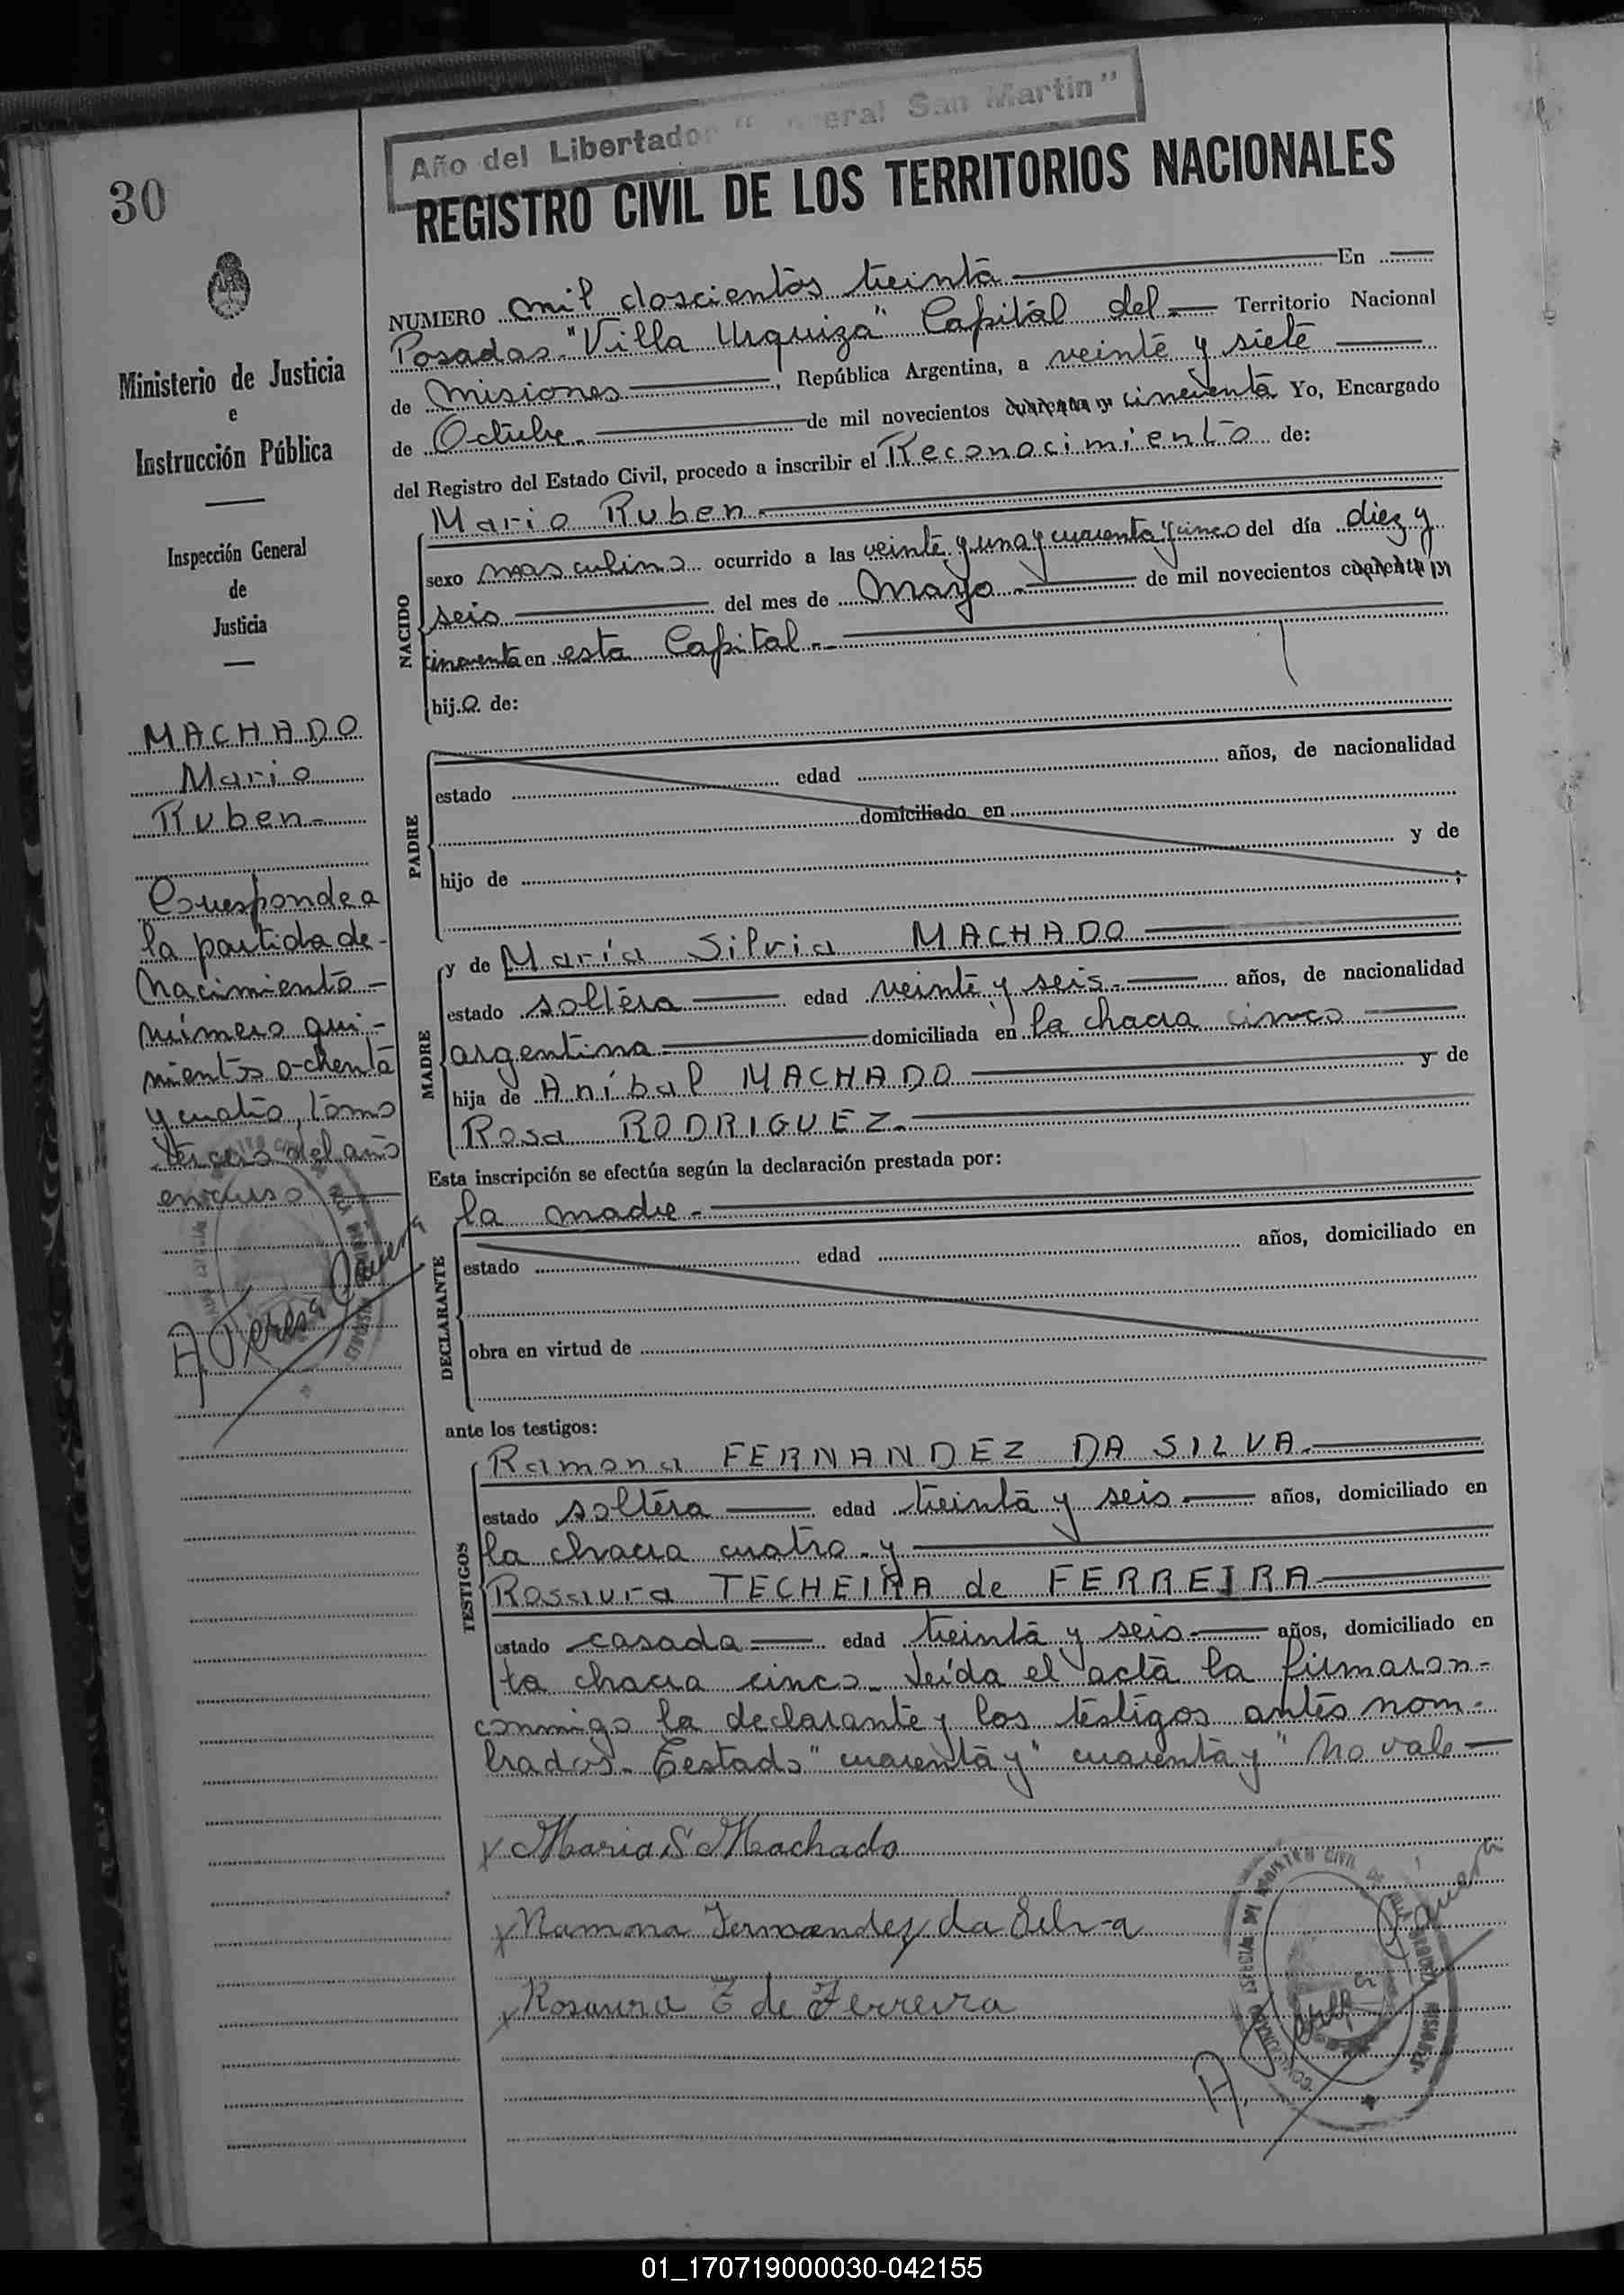 Año del Libertador "General San Martin"
30
REGISTRO CIVIL DE LOS TERRITORIOS NACIONALES
Ministerio de Justicia
e
Instrucción Pública
Inspección General
de
Justicia
MACHADO
Mario
Ruben-
Corresponde a
la partida de-
Nacimiento-
número qui-
nientos ochenta
y cuatro, tomo
tercero del año
en curso
A. Teresa
NUMERO mil doscientos treinta En
Posadas "Villa Urquiza" Capital del Territorio Nacional
de Misiones, República Argentina, a veinte y siete
de Octubre.- de mil novecientos cuarenta y cincuenta Yo, Encargado
del Registro del Estado Civil, procedo a inscribir el Reconocimiento de:
NACIDO
Mario Ruben.-
sexo masculino ocurrido a las veinte y una y cuarenta y cinco del día diez y
seis del mes de Mayo.- de mil novecientos cuarenta y
cincuenta en esta Capital.-
hijo de:
PADRE
estado edad años, de nacionalidad
domiciliado en
hijo de y de
;
MADRE
y de María Silvia MACHADO
estado soltera edad veinte y seis.- años, de nacionalidad
argentina.- domiciliada en la chacra cinco
hija de Aníbal MACHADO y de
Rosa RODRIGUEZ.-
Esta inscripción se efectúa según la declaración prestada por:
la madre.-
DECLARANTE
estado edad años, domiciliado en
obra en virtud de
ante los testigos:
TESTIGOS
Ramona FERNANDEZ DA SILVA.-
estado soltera edad treinta y seis.- años, domiciliado en
la chacra cuatro.y
Rosaura TECHEIRA de FERREIRA.-
estado casada edad treinta y seis.- años, domiciliado en
la chacra cinco.- Leída el acta la firmaron-
conmigo la declarante y los testigos antes nom-
brados.- Testado "cuarenta y" cuarenta y" No vale-
x Maria S Machado
x Ramona Fernandez da Silva
x Rosaura T de Ferreira
REGISTRO CIVIL
MISIONES
01_170719000030-042155